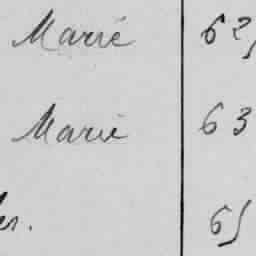 Marié 62
Marié 63
65